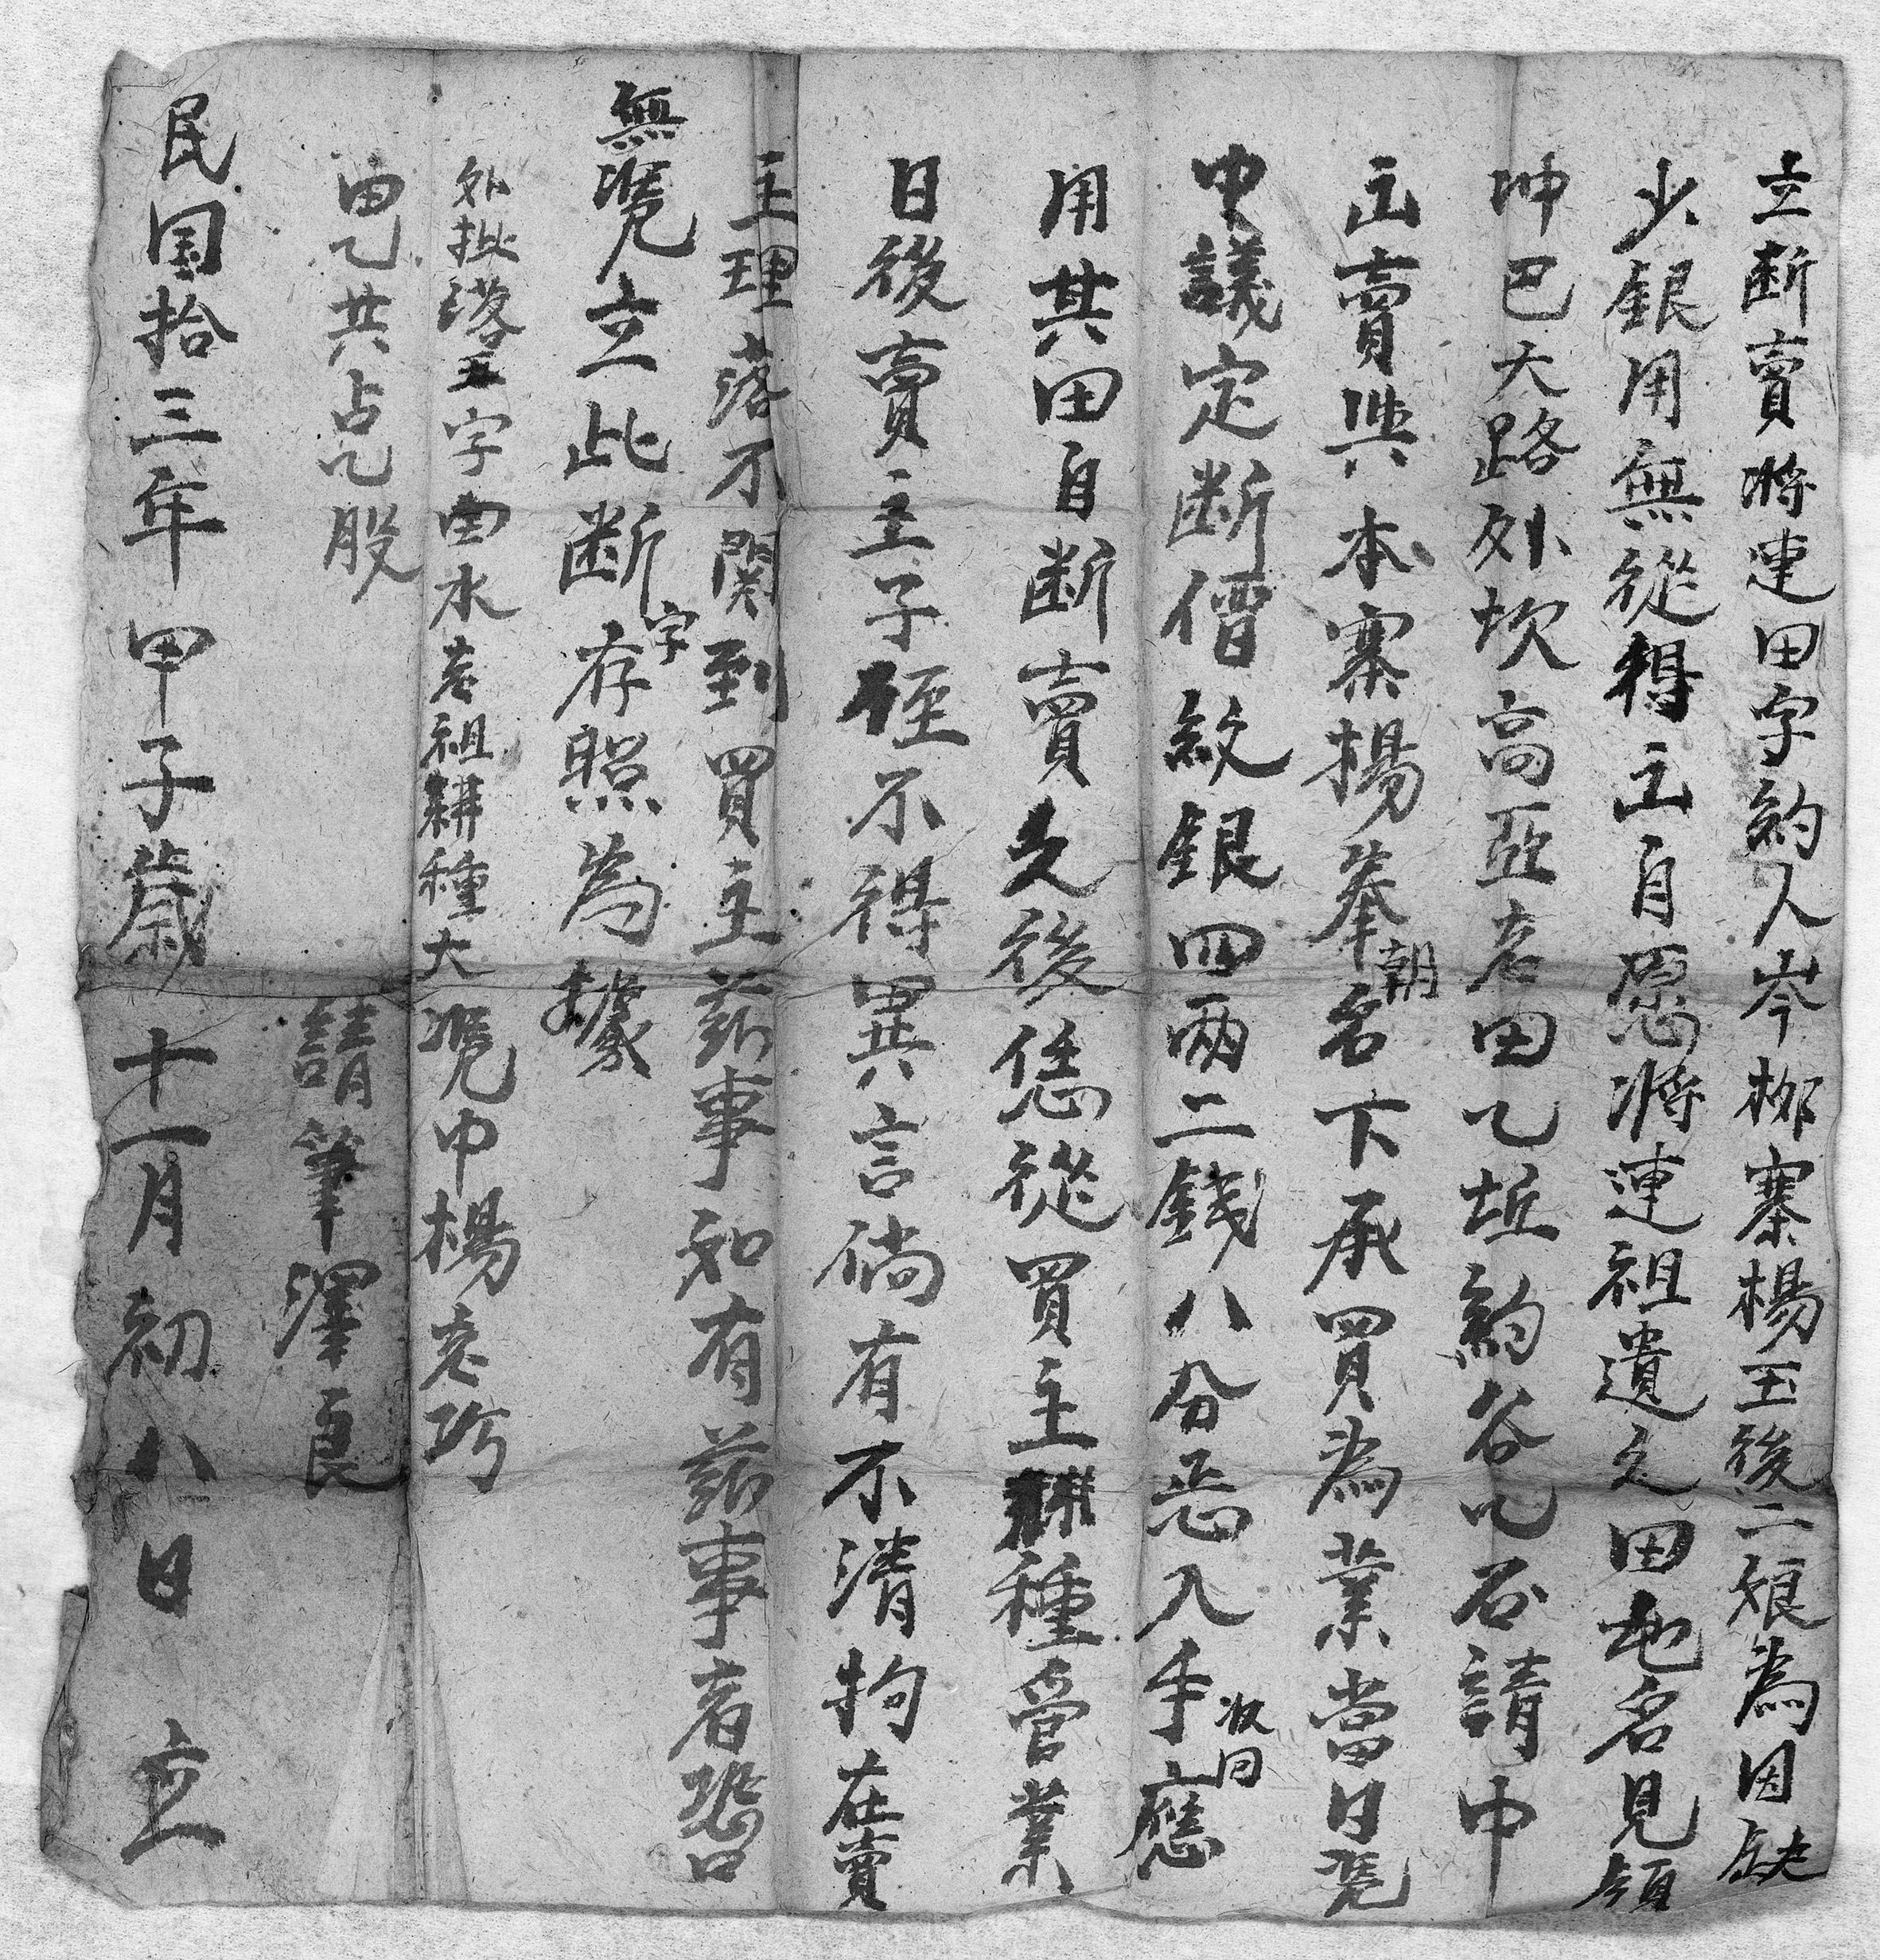 立断賣將連田字約人岑梛寨楊玉後二娘為因缺
少銀用無從得出自愿將連祖遺之田地名見領
坤巴大路外坎高亞老田乙坵約谷乙石請中
出賣與本寨楊奉朝名下承買為業當日凴
中議定断價紋銀四兩二錢八分恶入手收回應
用其田自断賣之後恁從買主耕種管業
日後賣主子侄不得異言倘有不清拘在賣
主理落不關到買主茲事如有茲事者恐口
無凴立此断字存照為據
外批落五字由水老祖耕種大凴中楊老巧
田乙共占乙股
請筆澤良
民国拾三年甲子歲十一月初八日立